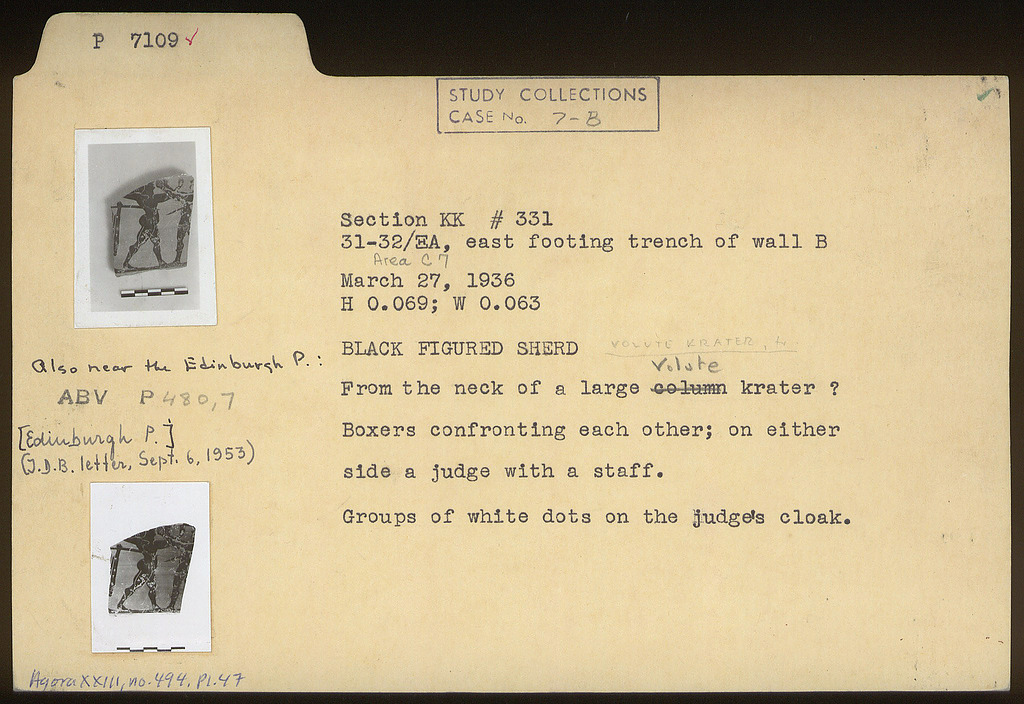 P 7109 ✓
STUDY COLLECTIONS
CASE No. 7-B
Section KK # 331
31-32/EA, east footing trench of wall B
Area C 7
March 27, 1936
H 0.069; W 0.063
BLACK FIGURED SHERD VOLUTE KRATER,
Volute
From the neck of a large column krater ?
Boxers confronting each other; on either
side a judge with a staff.
Groups of white dots on the judge's cloak.
Also near the Edinburgh P.:
ABV P 480,7
[Edinburgh P.]
(J.D.B. letter, Sept. 6, 1953)
Agora XXIII, no. 494, Pl. 47